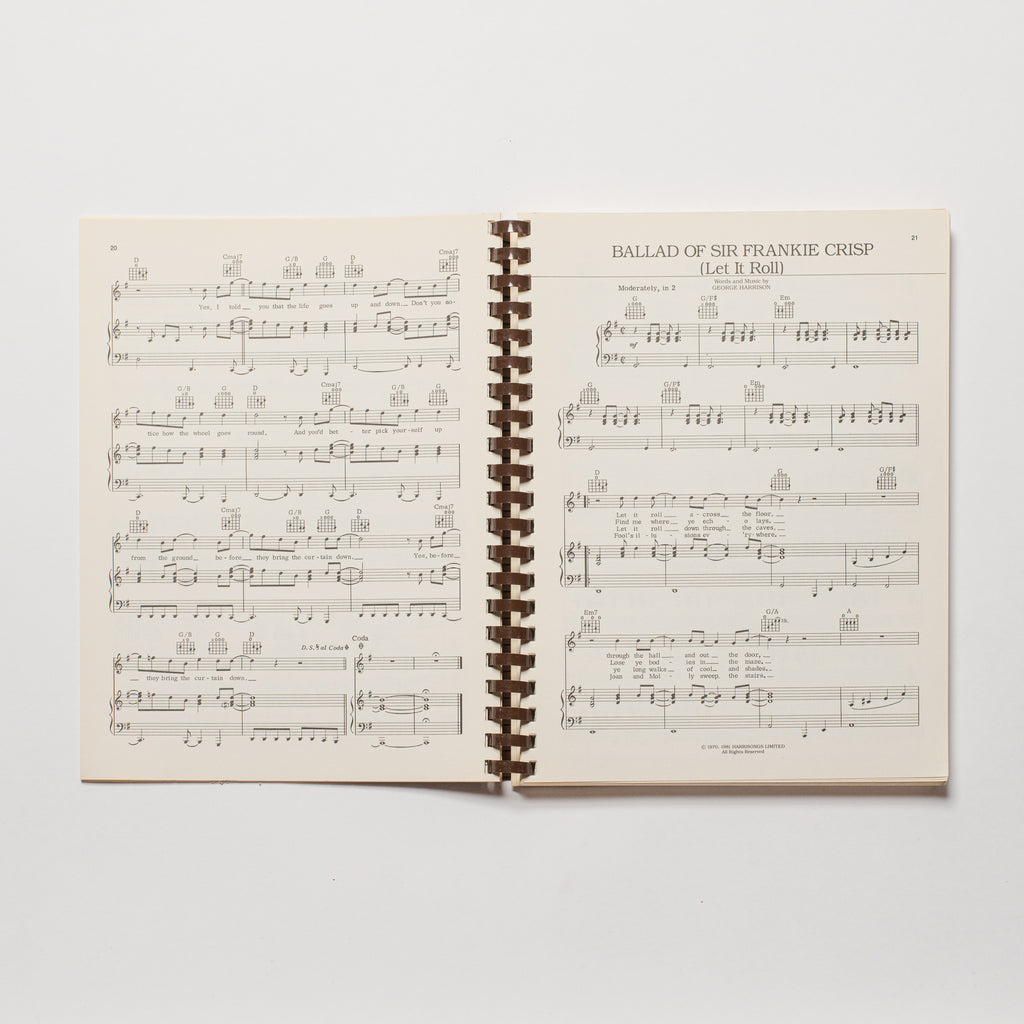 20
D Cmaj7 G/B G D Cmaj7
Yes, I told you that the life goes up and down. Don't you no-
G/B G D Cmaj7 G/B G
tice how the wheel goes round. And you'd bet - ter pick your-self up
D Cmaj7 G/B G D Cmaj7
from the ground be - fore they bring the cur - tain down. Yes, be - fore
G/B G D D.S. al Coda Coda
they bring the cur - tain down.
21
BALLAD OF SIR FRANKIE CRISP
(Let It Roll)
Words and Music by
GEORGE HARRISON
Moderately, in 2
G G/F# Em
mf
G G/F# Em
D G G/F#
Let it roll a - cross the floor,
Find me where ye ech - o lays,
Let it roll down through the caves,
Fool's il - lu - sions ev - 'ry - where,
Em7 G/A A
through the hall and out the door,
Lose ye bod - ies in the maze,
ye long walks of cool and shades,
Joan and Mol - ly sweep the stairs,
© 1970, 1981 HARRISONGS LIMITED
All Rights Reserved